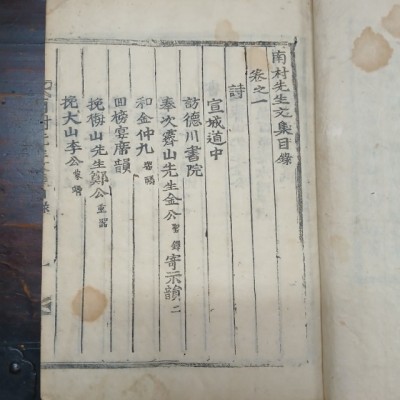 南村先生文集目錄
卷之一
詩
宣城道中
訪德川書院
奉次霽山先生金公聖鐸寄示韻二
和金仲九
回榜宴席韻
挽梅山先生鄭公重器
挽大山李公象靖